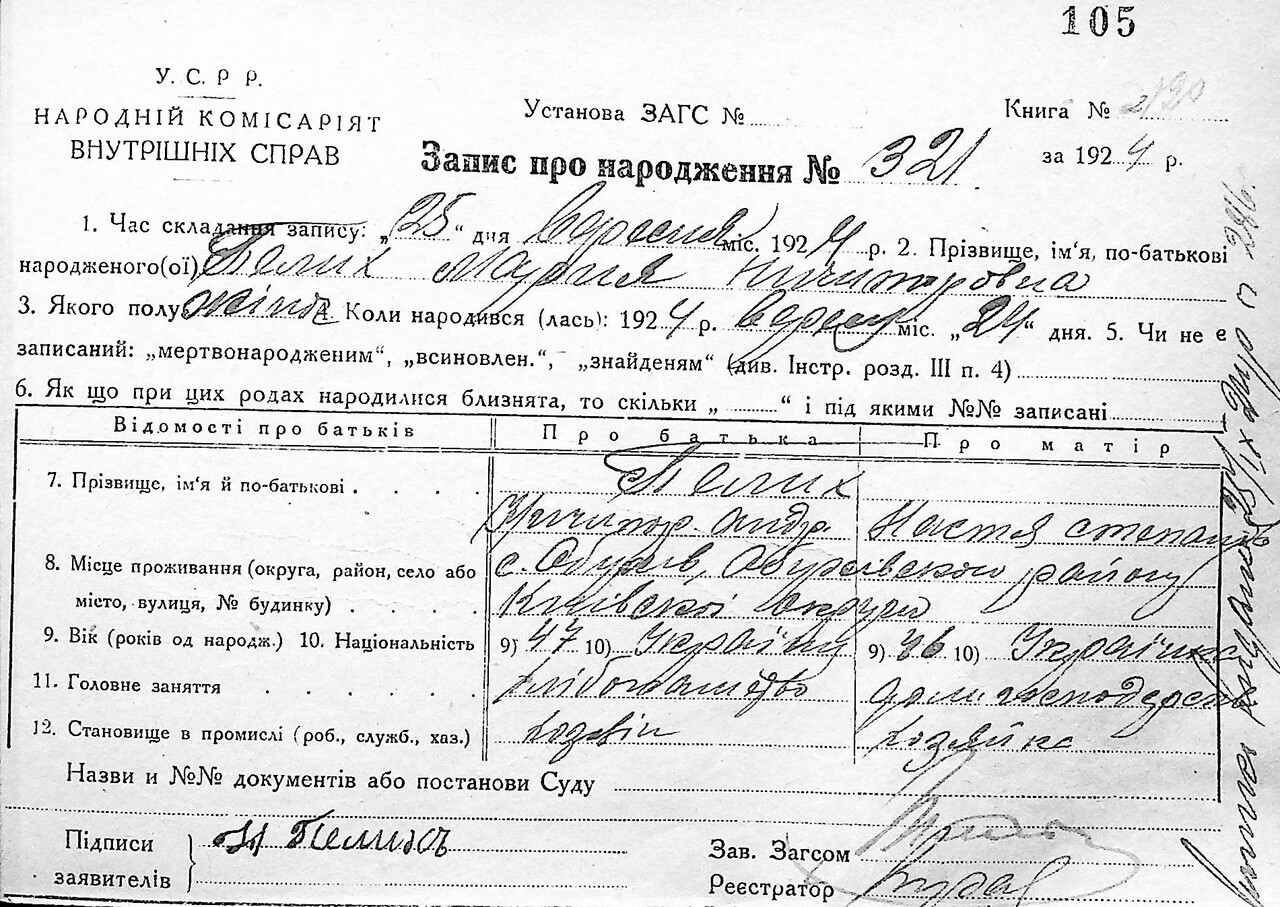 105
У. С. Р Р.
НАРОДНІЙ КОМІСАРІЯТ
ВНУТРІШНІХ СПРАВ
Установа ЗАГС №
Книга №
Запис про народження № 321
за 1924 р.
1. Час складання запису: „25“ дня вересня міс. 1924 р. 2. Прізвище, ім‘я, по-батькові
народженого(ої) Белих Мария Ничипоровна
3. Якого полу жіноч 4. Коли народився (лась): 1924 р. вересн міс. „24“ дня. 5. Чи не є
записаний: „мертвонародженим“, „всиновлен.“, „знайденям“ (див. Інстр. розд. III п. 4)
6. Як що при цих родах народилися близнята, то скільки „ “ і під якими №№ записані
Відомості про батьків Про батька Про матір
7. Прізвище, ім‘я й по-батькові Белих
Ничипор Андр Настя степанів
8. Місце проживання (округа, район, село або с. Обухів, Обухівського району
місто, вулиця, № будинку) Київскої округи
9. Вік (років од народж.) 10. Національність 9) 47 10) Українц 9) 36 10) Українка
11. Головне заняття хлібопашество доми господарство
12. Становище в промислі (роб., служб., хаз.) хозяїн хозяйка
Назви и №№ документів або постанови Суду
Підписи Н Белихъ
заявителів
Зав. Загсом
Реєстратор